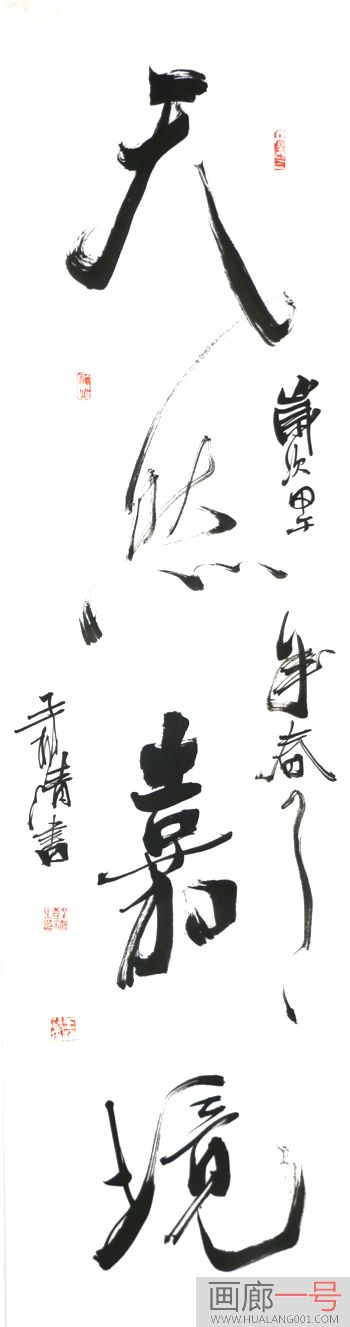 天然嘉境
岁次甲午年春
清书
画廊一号
WWW.HUALANG001.COM